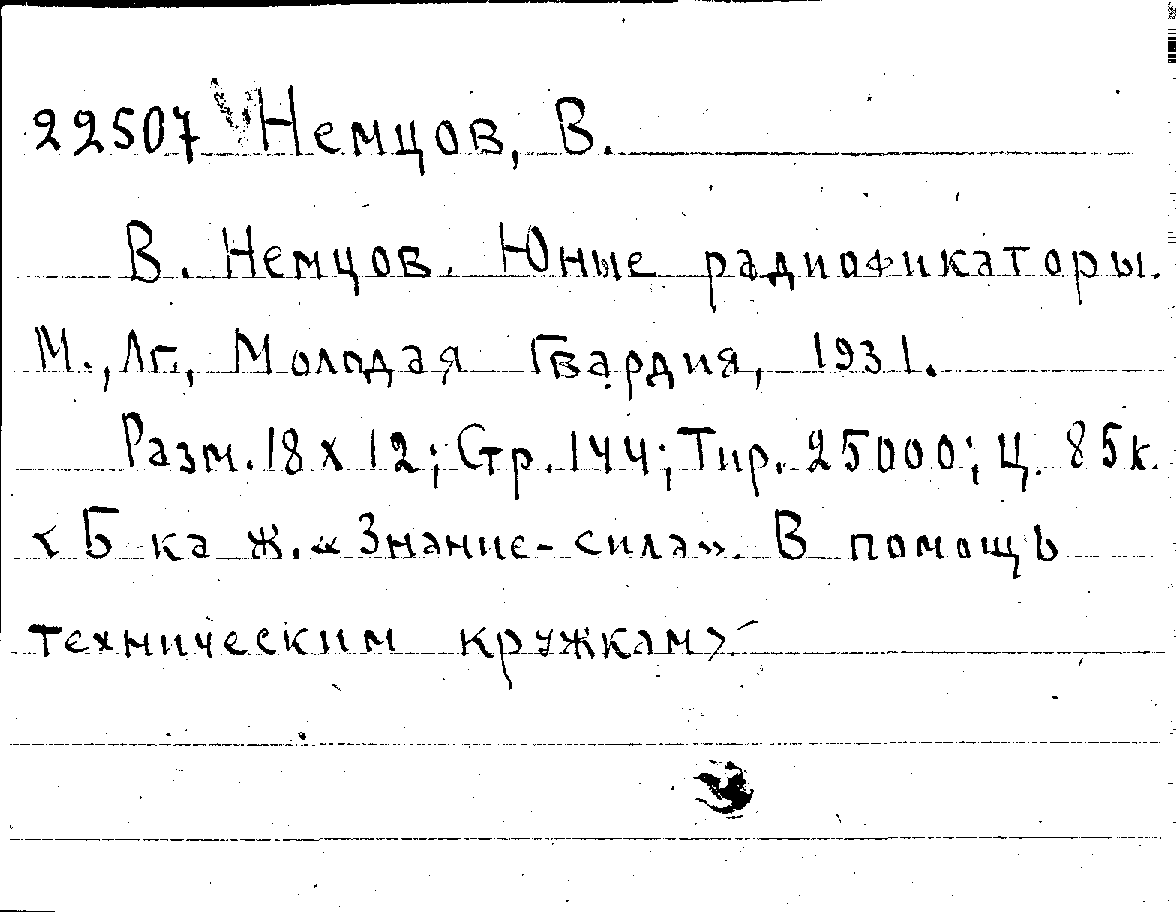 22507 Немцов, В.
В. Немцов. Юные радиофикаторы.
М., Лг., Молодая Гвардия, 1931.
Разм. 18 х 12; Стр. 144; Тир. 25000; Ц. 85к.
<Б-ка ж. «Знание-сила». В помощь
техническим кружкам>